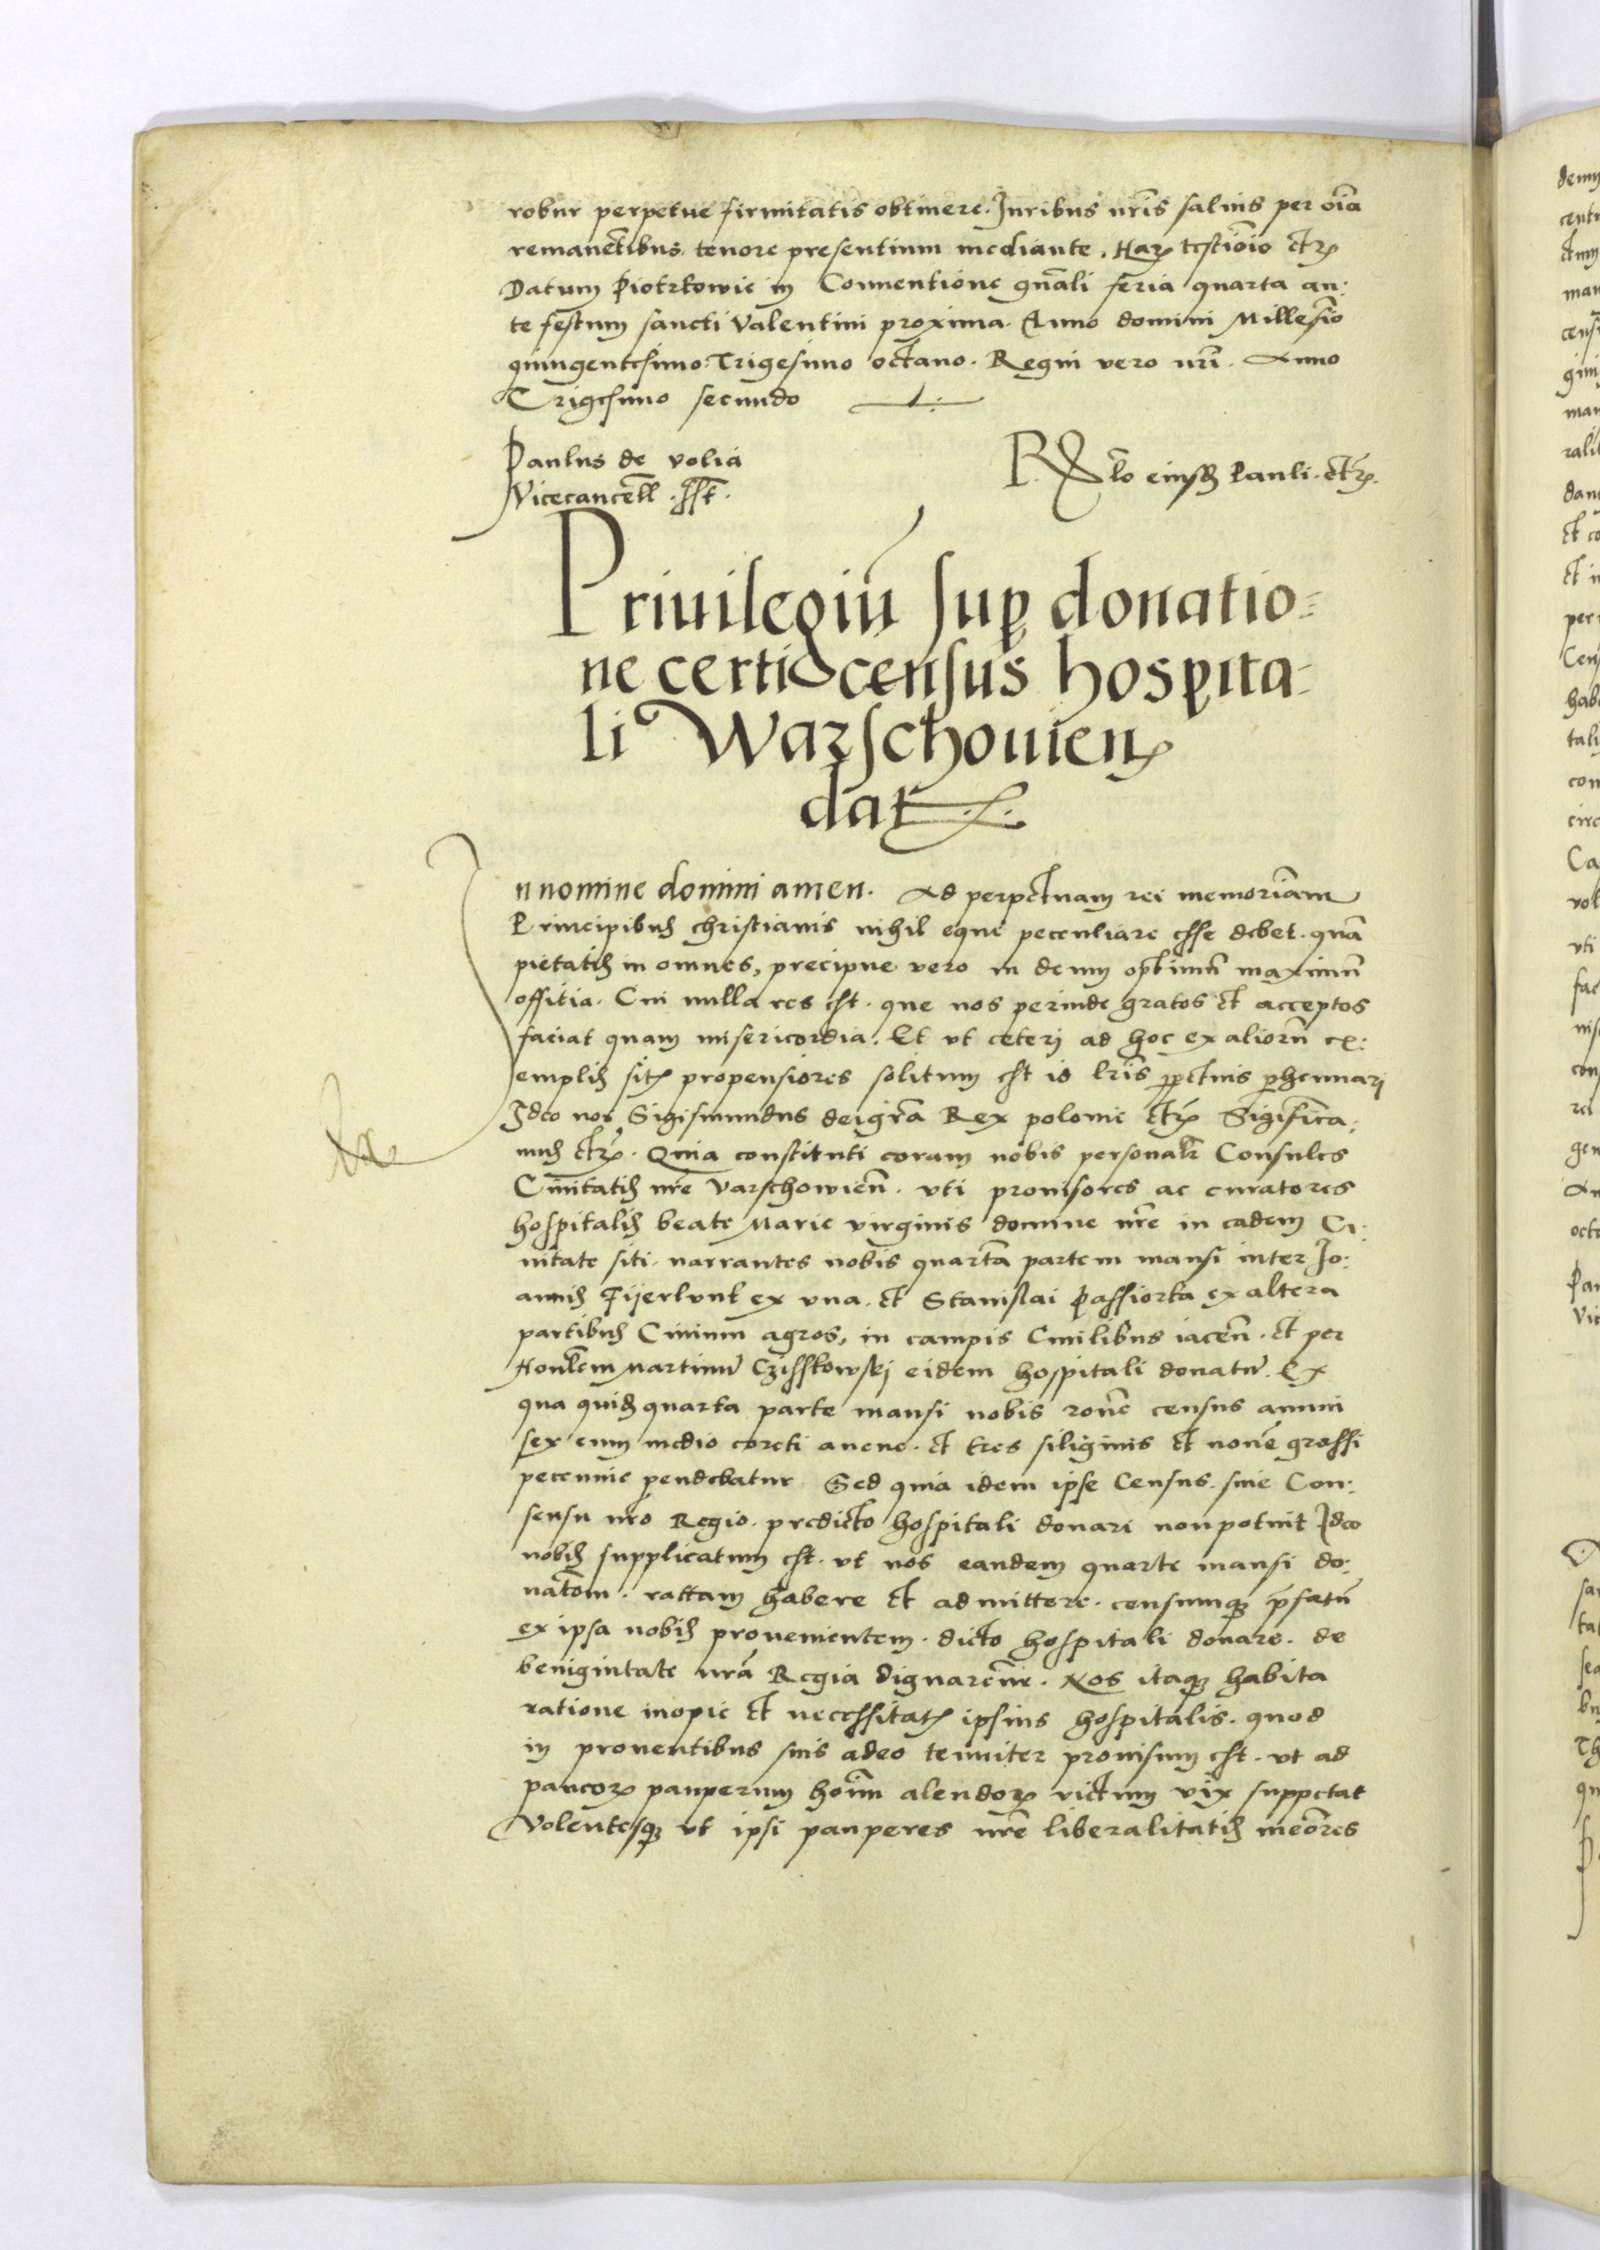 robur perpetue firmitatis obtinere. Iuribus nr̃is saluis per oĩa
remanẽtibus tenore presentium mediante. Harꝝ testiõio etꝝ
Datum Piotrkowie in Conuentione gñali feria quarta an:
te festum sancti Valentini proxima. Anno domini Millesiõ
quingentesimo: Trigesimo octauo. Regni vero nr̃i. Anno
Trigesimo secundo
Paulus de volia
Vicecancell̃. sst.
R. lõ eiusd Pauli. etꝝ.
Priuilegiũ suꝑ donatio-
ne certi census hospita-
li Warschouienꝝ
dat
In nomine domini amen. Ad perpetuam rei memoriam
Principibus christianis nihil eque peculiare esse debet. quã
pietatis in omnes, precipue vero in deum optimũ maximũ
offitia. Cui nulla res est. que nos perinde gratos et acceptos
faciat quam misericordia. Et vt ceteri ad hoc ex aliorũ ex:
emplis sitꝝ propensiores solitum est id lr̃is ꝑpetuis ꝑhennari
Ideo nos Sigismundus dei gr̃a Rex polonie etꝝ Significa:
mus etꝝ. Quia constituti coram nobis personalr̃ Consules
Ciuitatis nr̃e Varschowieñ. vti prouisores ac curatores
hospitalis beate Marie virginis domine nr̃e in eadem Ci:
uitate siti. narrantes nobis quartã partem mansi inter Io:
annis Fijerlunk ex vna. et Stanislai Passiorka ex altera
partibus Ciuium agros, in campis Ciuilibus iaceñ. et per
Honl̃em Martinũ Czisskowskj eidem hospitali donatũ. Ex
qua quid quarta parte mansi nobis rõne census annui
sex cum medio coreti auene. et tres siliginis et nouẽ grossi
pecunie pendebatur Sed quia idem ipse Census. sine Con:
sensu nr̃o Regio. predicto hospitali donari non potuit Ideo
nobis supplicatum est. vt nos eandem quarte mansi do:
natõm. rattam habere et admittere. censumqꝫ p̃fatũ
ex ipsa nobis prouenientem. dicto hospitali donare. de
benignitate nr̃a Regia dignaremr̃. Nos itaqꝫ habita
ratione inopie et necessitatꝝ ipsius hospitalis. quod
in prouentibus suis adeo tenuiter prouisum est. vt ad
paucorꝝ pauperum hoĩm alendorꝝ victum vix suppetat
Volentesqꝫ vt ipsi pauperes nr̃e liberalitatis meõres